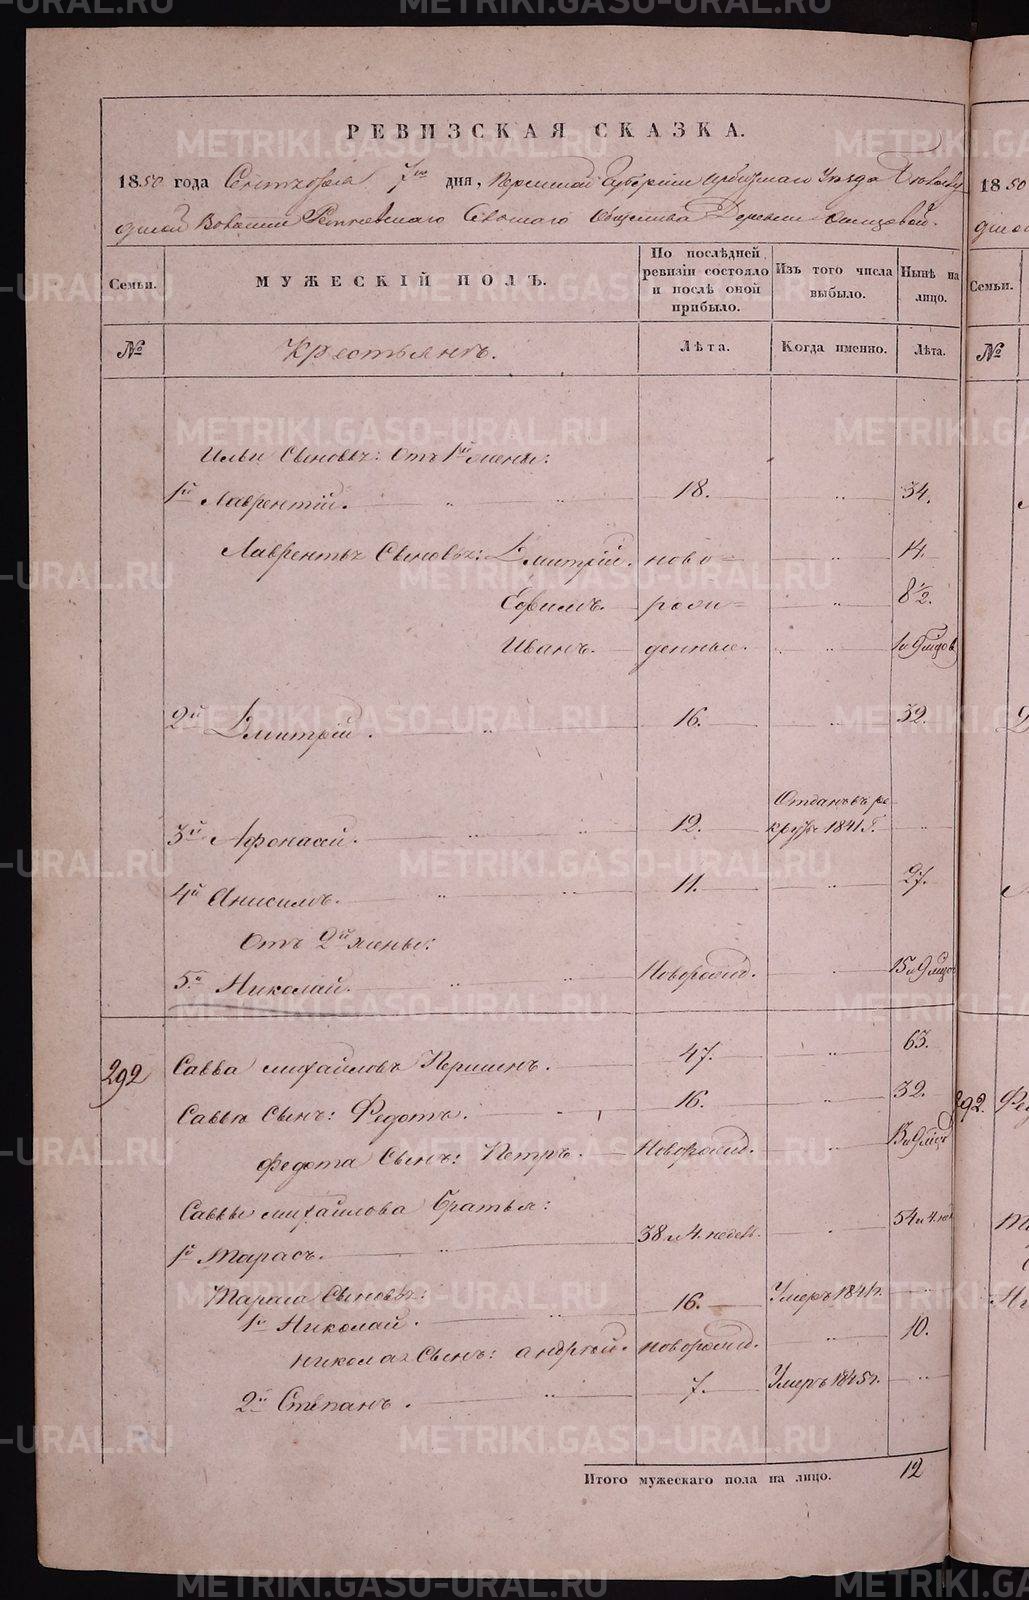 РЕВИЗСКАЯ СКАЗКА.
1850 года Сентября 7го дня, Пермской Губернии Ирбитскаго Уезда
Волости Сельскаго Общества Деревни
Семьи. МУЖЕСКІЙ ПОЛЪ. По послѣдней ревизіи состояло и послѣ оной прибыло. Изъ того числа выбыло. Нынѣ на лицо.
№ Крестьянъ. Лѣта. Когда именно. Лѣта.
Ильи Сыновья: Отъ 1й жены:
1й Лаврентій. 18. 34.
Лаврентья Сыновья: Дмитрій. ново= 14.
Ефимъ. рож= 8 1/2.
Иванъ. денные. 1 и 9 мѣсяцов
2й Дмитрій. 16. 32.
3й Афонасий. 12. Отданъ въ рекруты 1841 г.
4й Анисимъ. 11. 27.
Отъ 2й жены:
5й Николай. Новорожд. 15 и 9 мѣсяц
292 Савва Михайловъ Першинъ. 47. 63.
Саввы Сынъ: Федотъ. 16. 32.
Федота Сынъ: Петръ. Новорожд. 13 и 9 мѣсяц
Саввы Михайлова братья:
1й Тарасъ. 38 и 4 недел. 54 и 4 нед
Тараса Сыновья:
1й Николай. 16. Умеръ 1841 г.
Николая Сынъ: Андрей. новорожд. 10.
2й Степанъ. 7. Умеръ 1845 г.
Итого мужескаго пола на лицо. 12
1850
Семьи.
№
292.
METRIKI.GASO-URAL.RU